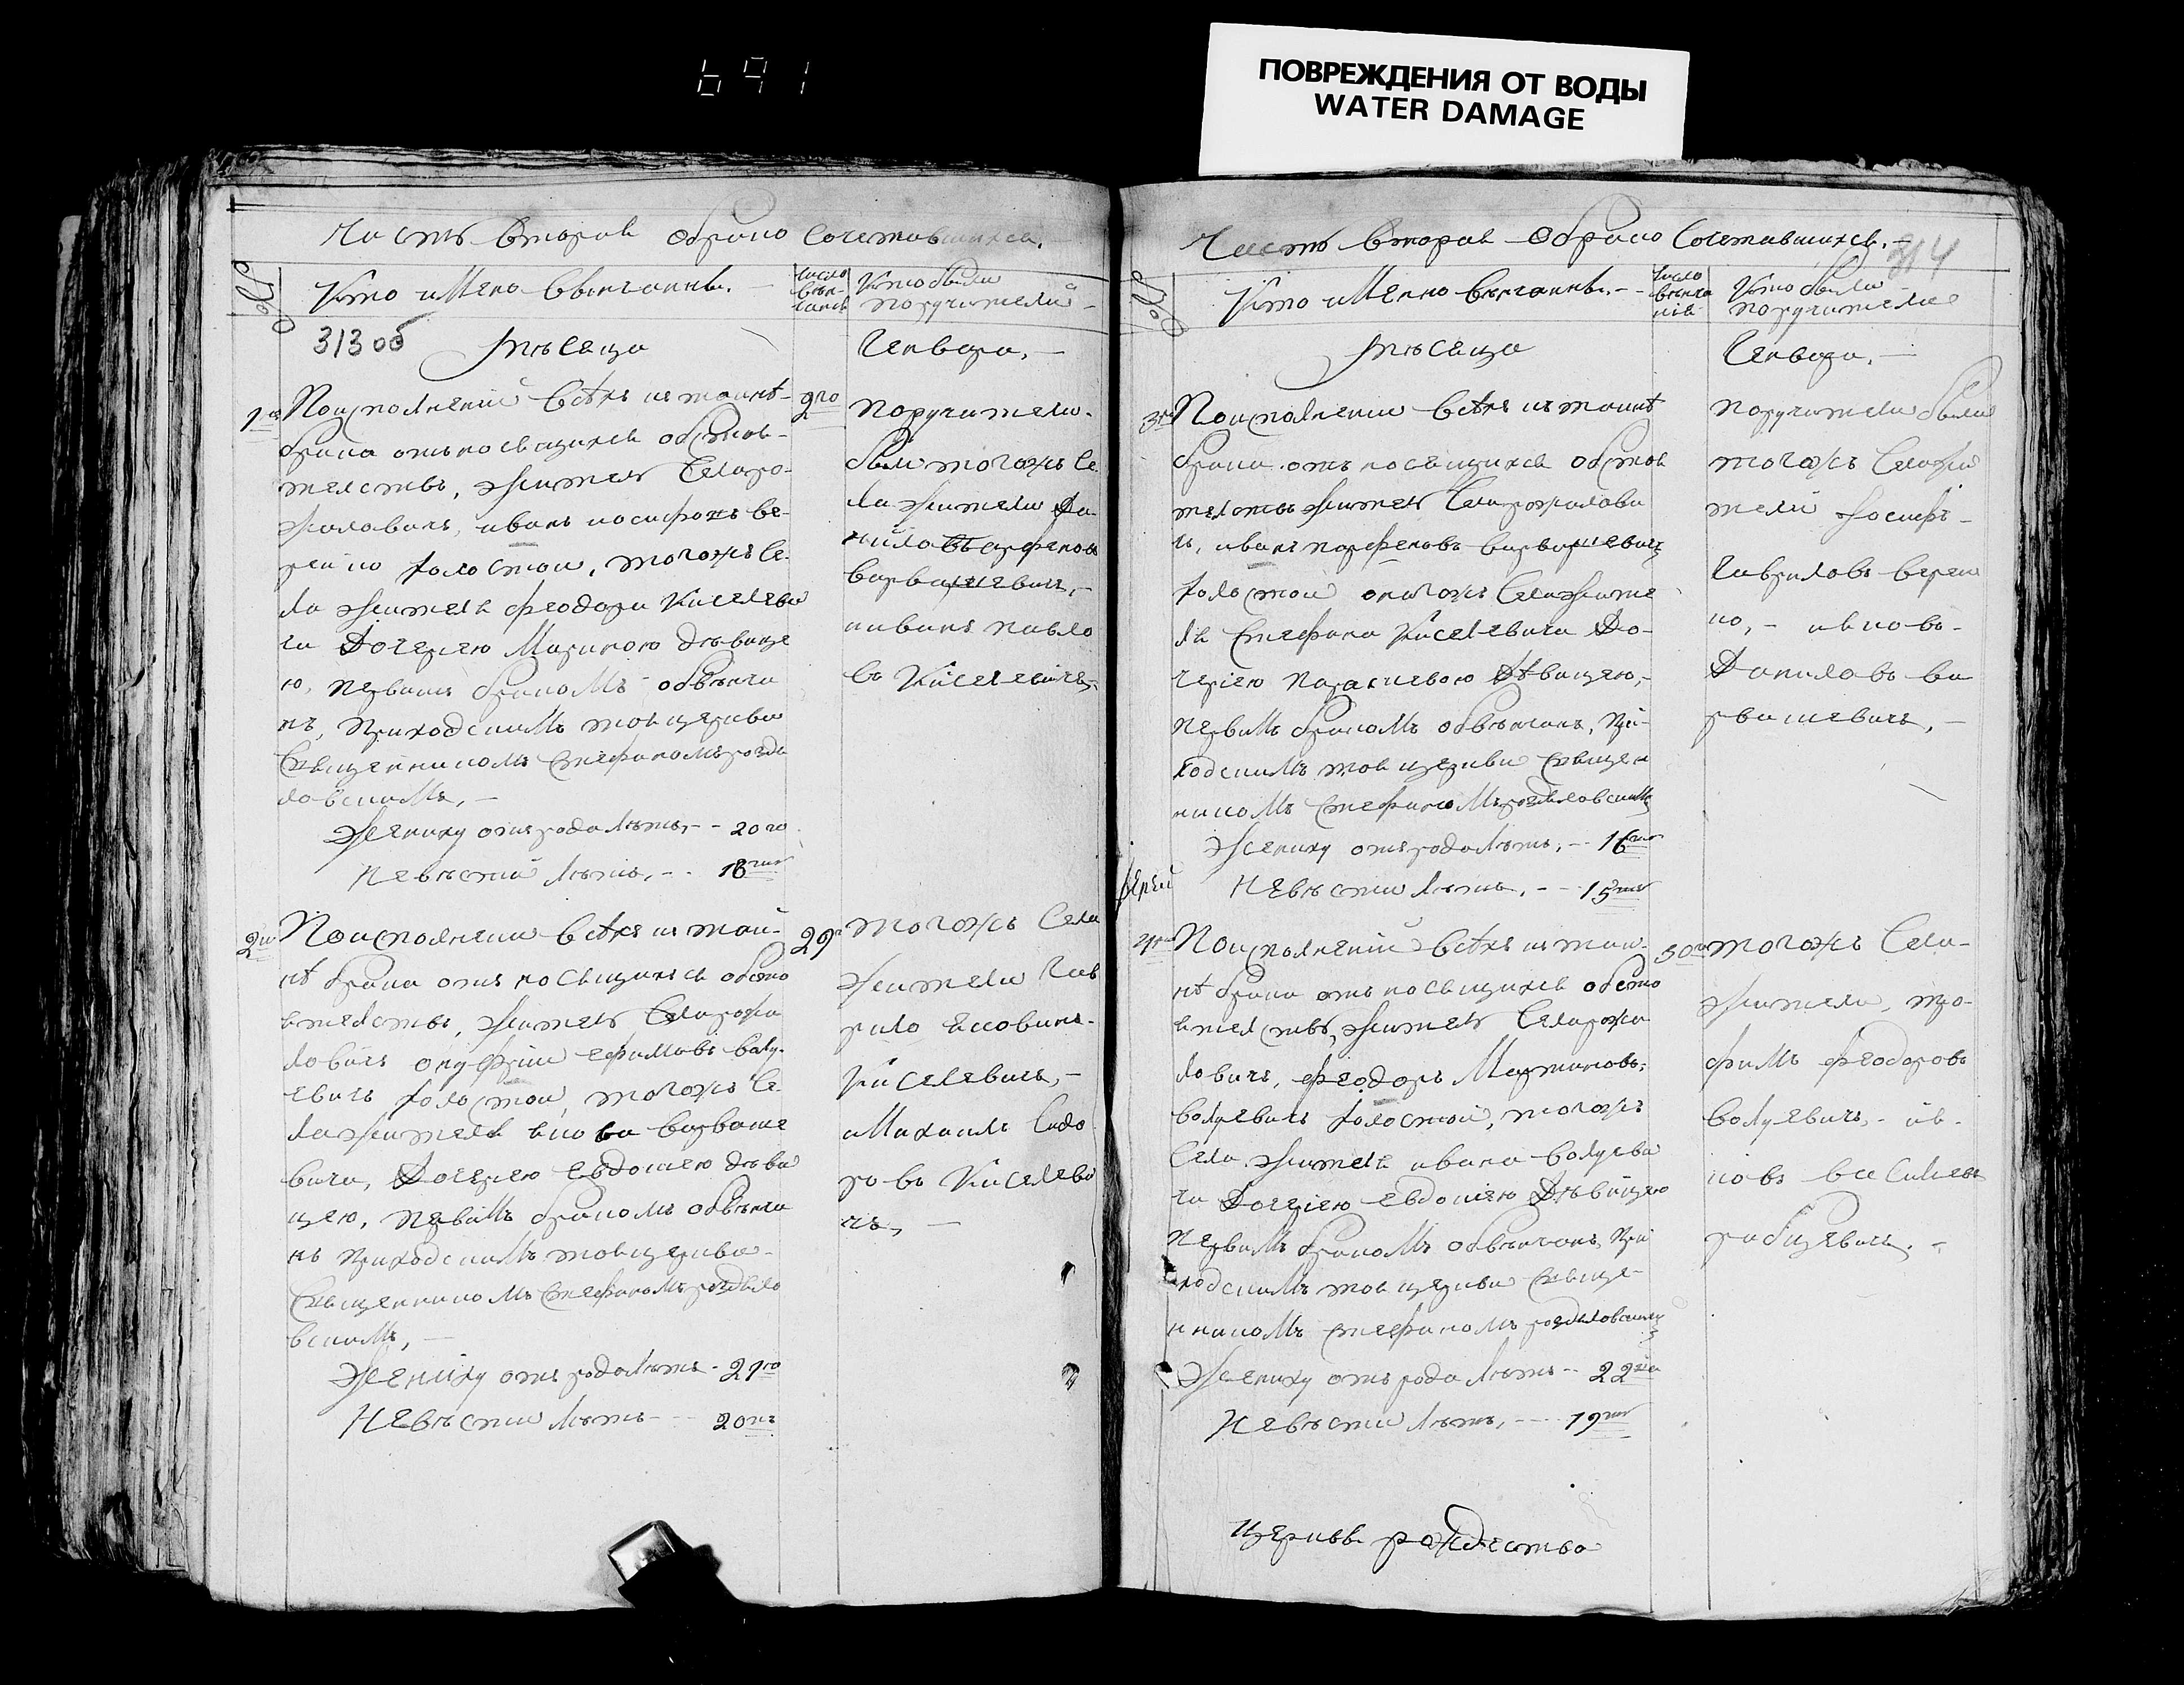 691
ПОВРЕЖДЕНИЯ ОТ ВОДЫ
WATER DAMAGE
Часть вторая обрако сочетавшихся.
№
Кто имено венчаны.
число венчания
Кто были поручители
313 об
месеца
Генвара.
1го
По исполнении всехъ к таинст-
брака относящихся обстоя-
телствъ, житель села ро-
жаловичъ, иванъ иосифовъ ве-
рейко холостой, тогожъ се-
ла жителя феодора Киселеви
ча Дочерею Мариною девице
ю, первымъ бракомъ обвенча
нъ, приходскимъ тоя церкви
Священникомъ Стефаномъ роздя
ловскимъ,
Жениху отъ рода летъ, - - 20го
Невести летъ, - - 18ти
9го
поручители
были тогожъ се
ла жители Да
нило парфеновъ
варвашевичъ,
и иванъ павло
въ Киселевичъ,
2го
По исполнении всехъ к таин-
стѣ брака относящихся обсто
ятелствъ, житель села рожа
ловичъ онуфрий ефимовъ валу-
евичъ холостой, тогожъ се
ла жителя якова варваше
вича, Дочерею Евдокиею деви
цею, первимъ бракомъ обвенча
нъ приходскимъ тоя церкви
Священникомъ Стефаномъ роздяло
вскимъ,
Жениху отъ рода летъ - 21го
Невести летъ - - 20ти
29
тогожъ села
жители Гав
рило
Киселевичъ,
и Михаилъ Сидо
ровъ Киселеви
чъ,
Часть вторая обрако сочетавшихся.
314
№
Кто имянно венчаны.
число венчания
Кто были поручители
месеца
Генвара.
3го
По исполнении всехъ к таинст
брака относящихся обстоя
телствъ житель села рожалови
чъ, иванъ парфеновъ варвашевичъ
холостой тогожъ села жите
ля Стефана Киселевича До-
черею параскевою Девицею,
первимъ бракомъ обвенчанъ, при-
ходскимъ тоя церкви священ
никомъ Стефаномъ роздяловскимъ
Жениху отъ рода летъ, - - 16ти
Невести летъ, - - 15ти
поручители были
тогожъ села жи
тели иосифъ
Гавриловъ вереи
ко, - яковъ
Даниловъ ва
рвашевичъ,
иерей
4го
По исполнении всехъ к таин-
стѣ брака относящихся обсто
ятелствъ, житель села рожа
ловичъ, феодоръ Мартиновъ
валуевичъ холостой, тогожъ
села жителя ивана валуеви
ча Дочерею евдокиею Девицею
первимъ бракомъ обвенчанъ, при
ходскимъ тоя церкви Свяще-
нникомъ стефаномъ роздяловскимъ
Жениху отъ рода летъ - - 22
Невести летъ, - - 19ти
30го
тогожъ села
жители, тро-
фимъ феодоровъ
валуевичъ, - як
ковъ василиевъ
рабцевичъ.
церкви рождества